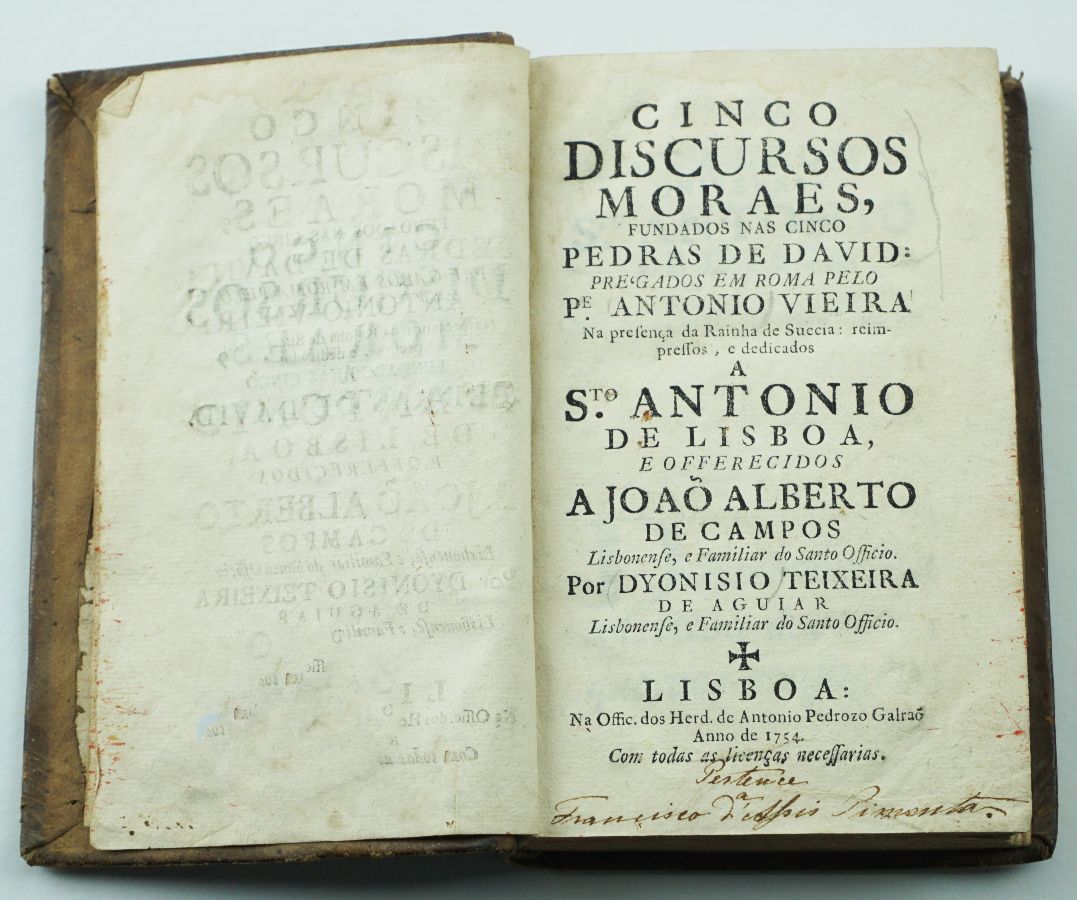 CINCO
DISCURSOS
MORAES,
FUNDADOS NAS CINCO
PEDRAS DE DAVID:
PRE'GADOS EM ROMA PELO
PE. ANTONIO VIEIRA
Na preſença da Rainha de Suecia: reim-
preſſos, e dedicados
A
STO. ANTONIO
DE LISBOA,
E OFFERECIDOS
A JOAÕ ALBERTO
DE CAMPOS
Lisbonenſe, e Familiar do Santo Officio.
Por DYONISIO TEIXEIRA
DE AGUIAR
Lisbonenſe, e Familiar do Santo Officio.
LISBOA:
Na Offic. dos Herd. de Antonio Pedrozo Galraõ
Anno de 1754.
Com todas as licenças neceſſarias.
Pertence
a
Francisco d'Assis Pimenta.